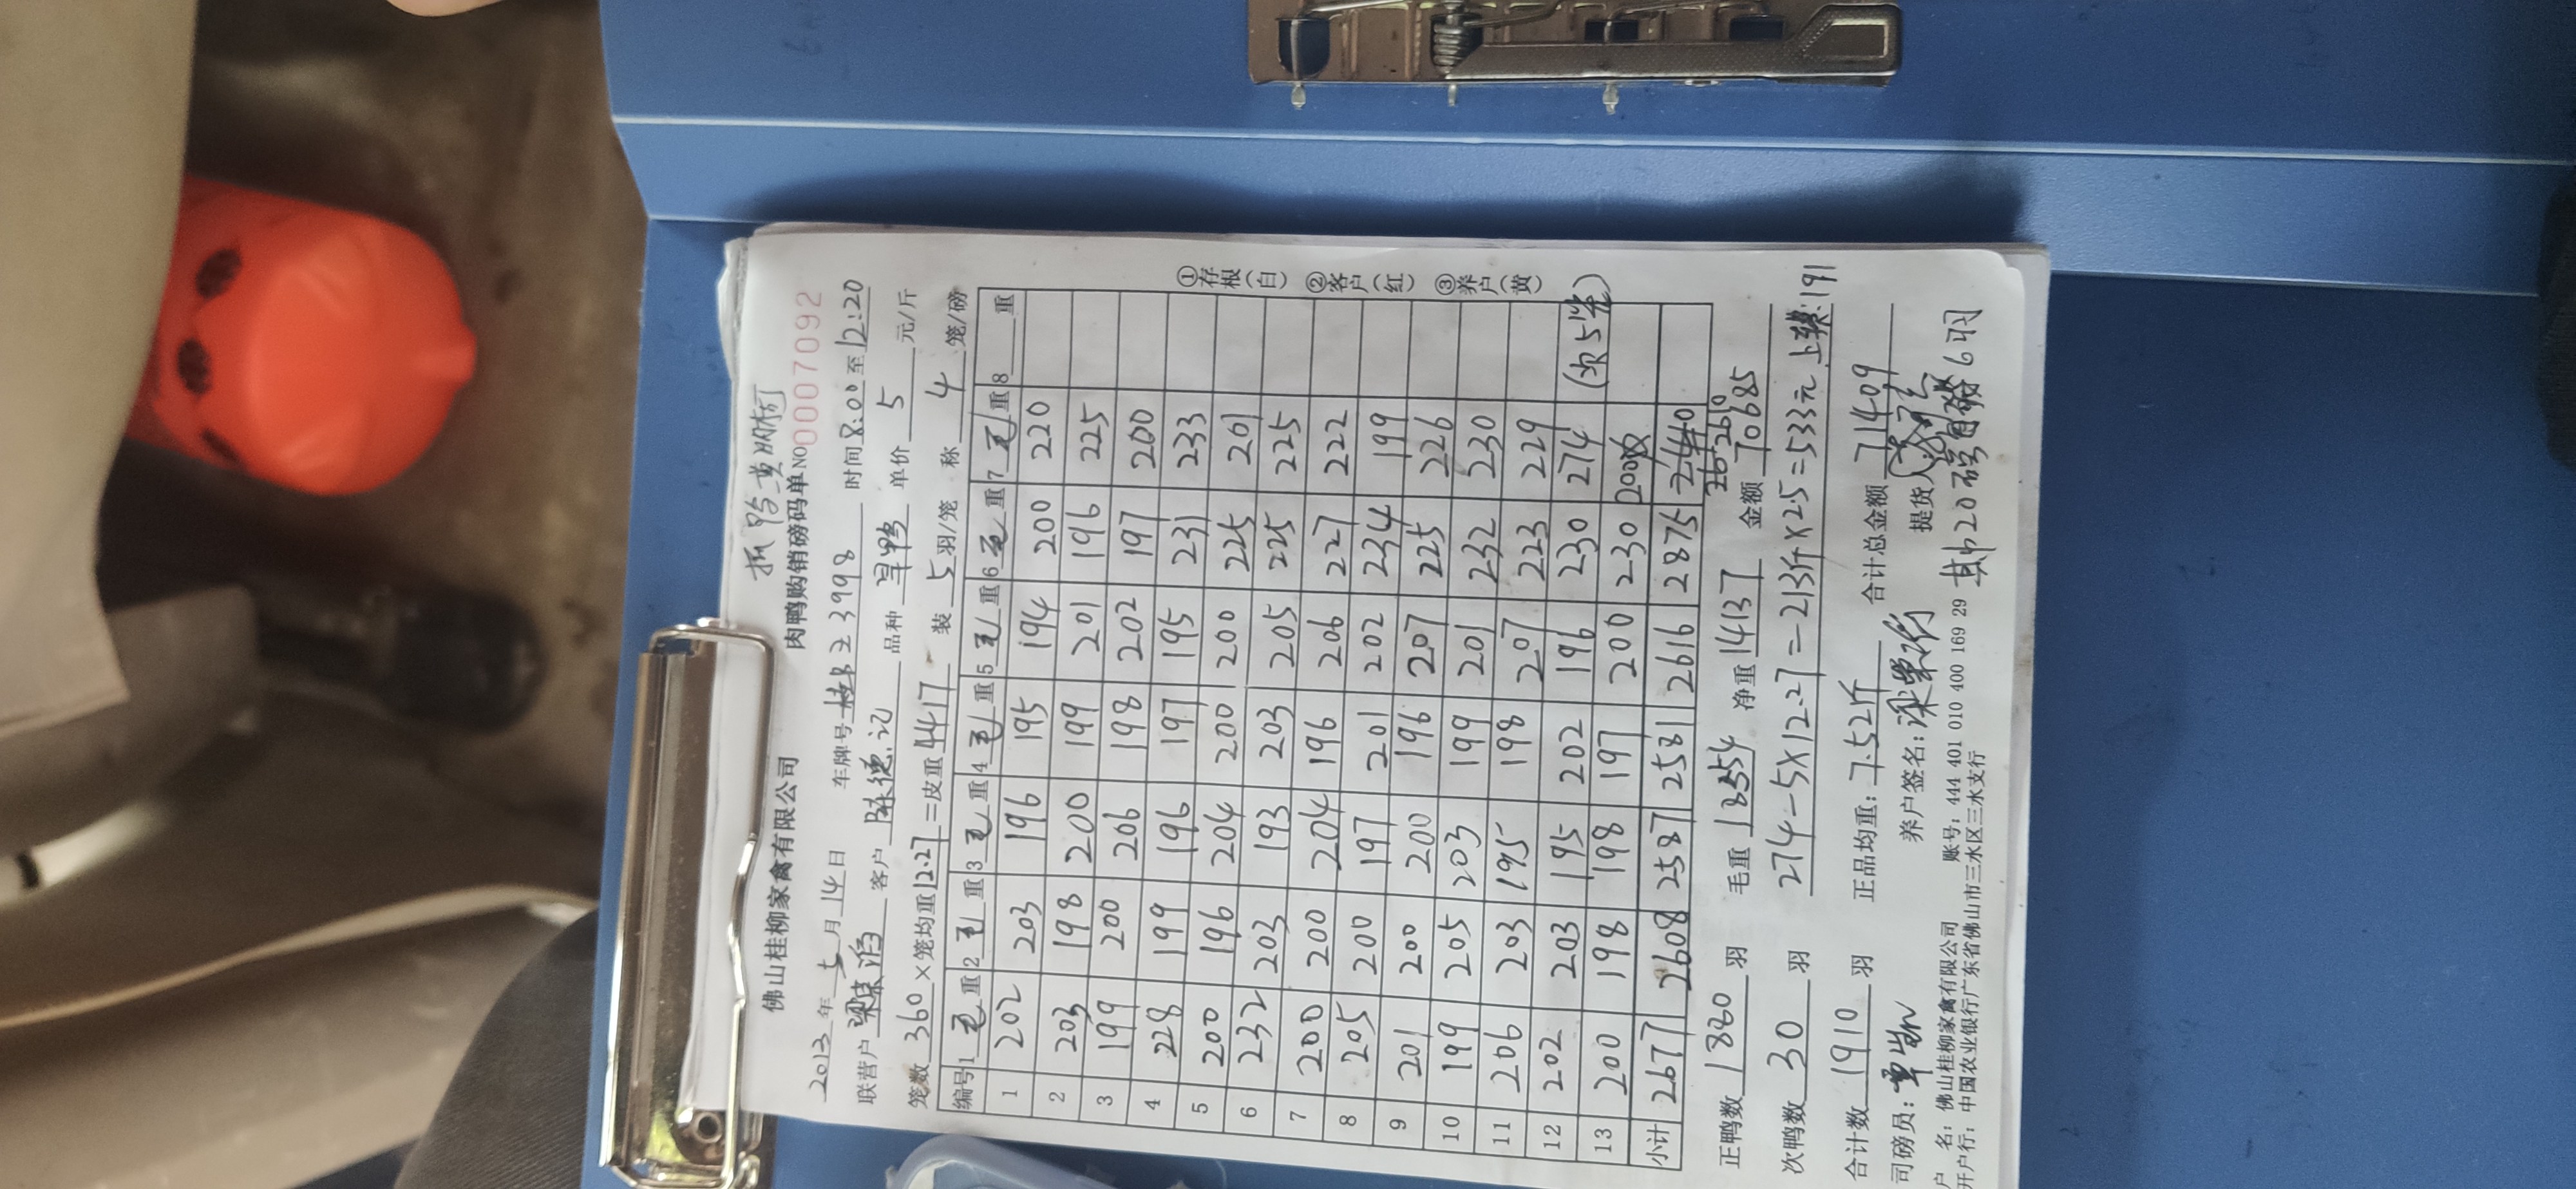 抓鸭黄炳树
佛山桂柳家禽有限公司 肉鸭购销磅码单 NO 00007092
2013年5月14日 车牌号 3998 时间 8:00 至 12:20
联营户 客户 陈德记 品种 旱鸭 单价 5 元/斤
笼数 360 ×笼均重 12.27 =皮重 4417 装 5 羽/笼 称 4 笼/磅
编号 1 毛 重 2 毛 重 3 毛 重 4 毛 重 5 毛 重 6 毛 重 7 毛 重 8 重
1 202 203 196 195 194 200 220
2 203 198 200 199 201 196 225
3 199 200 206 198 202 197 200
4 228 199 196 197 195 231 233
5 200 196 204 200 200 225 201
6 232 203 193 203 205 225 225
7 200 200 204 196 206 227 222
8 205 200 197 201 202 234 199
9 201 200 200 196 207 225 226
10 199 205 203 199 201 232 230
11 206 203 195 198 207 223 229
12 202 203 195 202 196 230 274 (次5笼)
13 200 198 198 197 200 230
小计 2677 2608 2587 2581 2616 2875
2610
正鸭数 1880 羽 毛重 净重 14137 金额 70685
次鸭数 30 羽 274-5×12.27=213斤×2.5=533元 上楼:191
合计数 1910 羽 正品均重: 7.52斤 合计总金额 71409
司磅员: 养户签名: 提货人
户 名: 佛山桂柳家禽有限公司 账号: 444 401 010 400 169 29 其中20磅 6羽
开户行: 中国农业银行广东省佛山市三水区三水支行
①存根(白) ②客户(红) ③养户(黄)